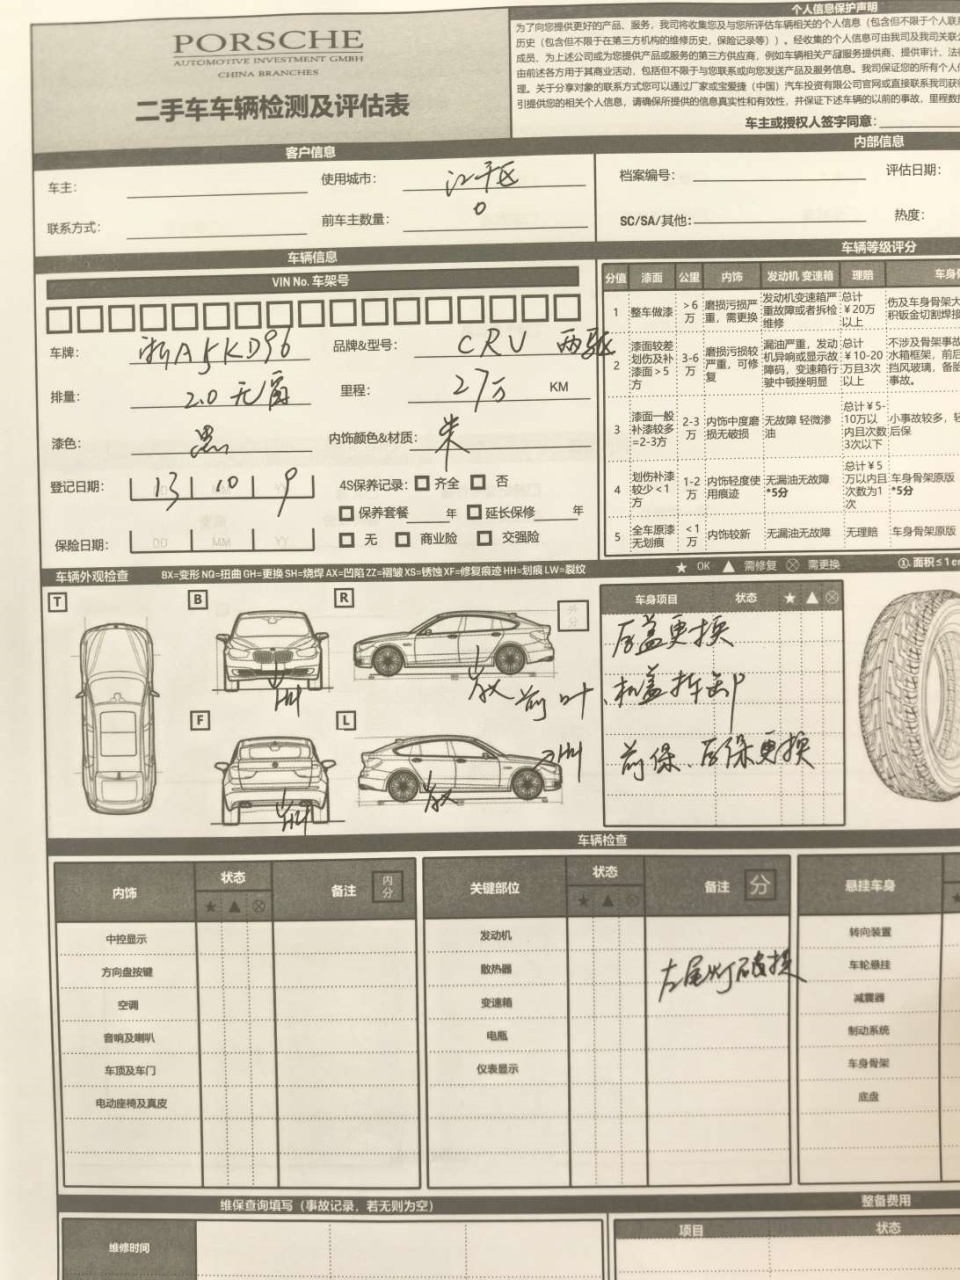 PORSCHE
AUTOMOTIVE INVESTMENT GMBH
CHINA BRANCHES
二手车车辆检测及评估表
个人信息保护声明
为了向您提供更好的产品、服务，我司将收集您及与您所评估车辆相关的个人信息（包含但不限于个人联系
历史（包含但不限于在第三方机构的维修历史，保险记录等））。经收集的个人信息可由我司及我司关联公
成员，为上述公司或为您提供产品或服务的第三方供应商，例如车辆相关产品服务提供商、提供审计、法律
由前述各方用于其商业活动，包括但不限于与您联系或向您发送产品及服务信息。我司保证您的所有个人信
理。关于分享对象的联系方式您可以通过厂家或宝爱捷（中国）汽车投资有限公司官网或直接联系我司获
引提供您的相关个人信息，请确保所提供的信息真实性和有效性，并保证下述车辆的以前的事故，里程数
车主或授权人签字同意：
客户信息
内部信息
车主：
使用城市：
档案编号：
评估日期：
联系方式：
前车主数量：
0
SC/SA/其他：
热度：
车辆信息
车辆等级评分
VIN No. 车架号
分值 漆面 公里 内饰 发动机 变速箱 理赔 车身
1 整车做漆 >6万 磨损污损严重，需更换 发动机变速箱严重故障或者拆检维修 总计￥20万以上 伤及车身骨架大 积钣金切割焊接
2 漆面较差 划伤及补漆面>5方 3-6万 磨损污损较严重，可修复 漏油严重，发动机异响或显示故障码，变速箱行驶中顿挫明显 总计￥10-20万且3次以上 不涉及骨架事故 水箱框架，前后 挡风玻璃，备胎 事故。
3 漆面一般 补漆较多=2-3方 2-3万 内饰中度磨损无破损 无故障 轻微渗油 总计￥5-10万以内且次数3次以下 小事故较多，轻 后保
4 划伤补漆较少<1方 1-2万 内饰轻度使用痕迹 无漏油无故障 *5分 总计￥5万以内且次数为1次 车身骨架原版 *5分
5 全车原漆无划痕 <1万 内饰较新 无漏油无故障 无理赔 车身骨架原版
车牌：
浙A5KD96
品牌&型号：
CRV 两驱
排量：
2.0 无窗
里程：
27万
KM
漆色：
黑
内饰颜色&材质：
登记日期：
13 10 9
4S保养记录： □ 齐全 □ 否
□ 保养套餐 年 □ 延长保修 年
保险日期：
DD MM YY
□ 无 □ 商业险 □ 交强险
车辆外观检查
BX=变形 NQ=扭曲 GH=更换 SH=烧焊 AX=凹陷 ZZ=褶皱 XS=锈蚀 XF=修复痕迹 HH=划痕 LW=裂纹
★ OK ▲ 需修复 ⊗ 需更换
①. 面积≤1
T
B
R
外分
车身项目 状态 ★ ▲ ⊗
后盖更换
HH
AX
前叶、机盖拆卸
F
L
HH
前保、后保更换
HH
AX
车辆检查
内饰 状态 ★ ▲ ⊗ 备注 内分
关键部位 状态 ★ ▲ ⊗ 备注 分
悬挂车身
中控显示
方向盘按键
空调
音响及喇叭
车顶及车门
电动座椅及真皮
发动机
散热器
变速箱
电瓶
仪表显示
左尾灯破损
转向装置
车轮悬挂
减震器
制动系统
车身骨架
底盘
维保查询填写（事故记录，若无则为空）
整备费用
维修时间
项目
状态